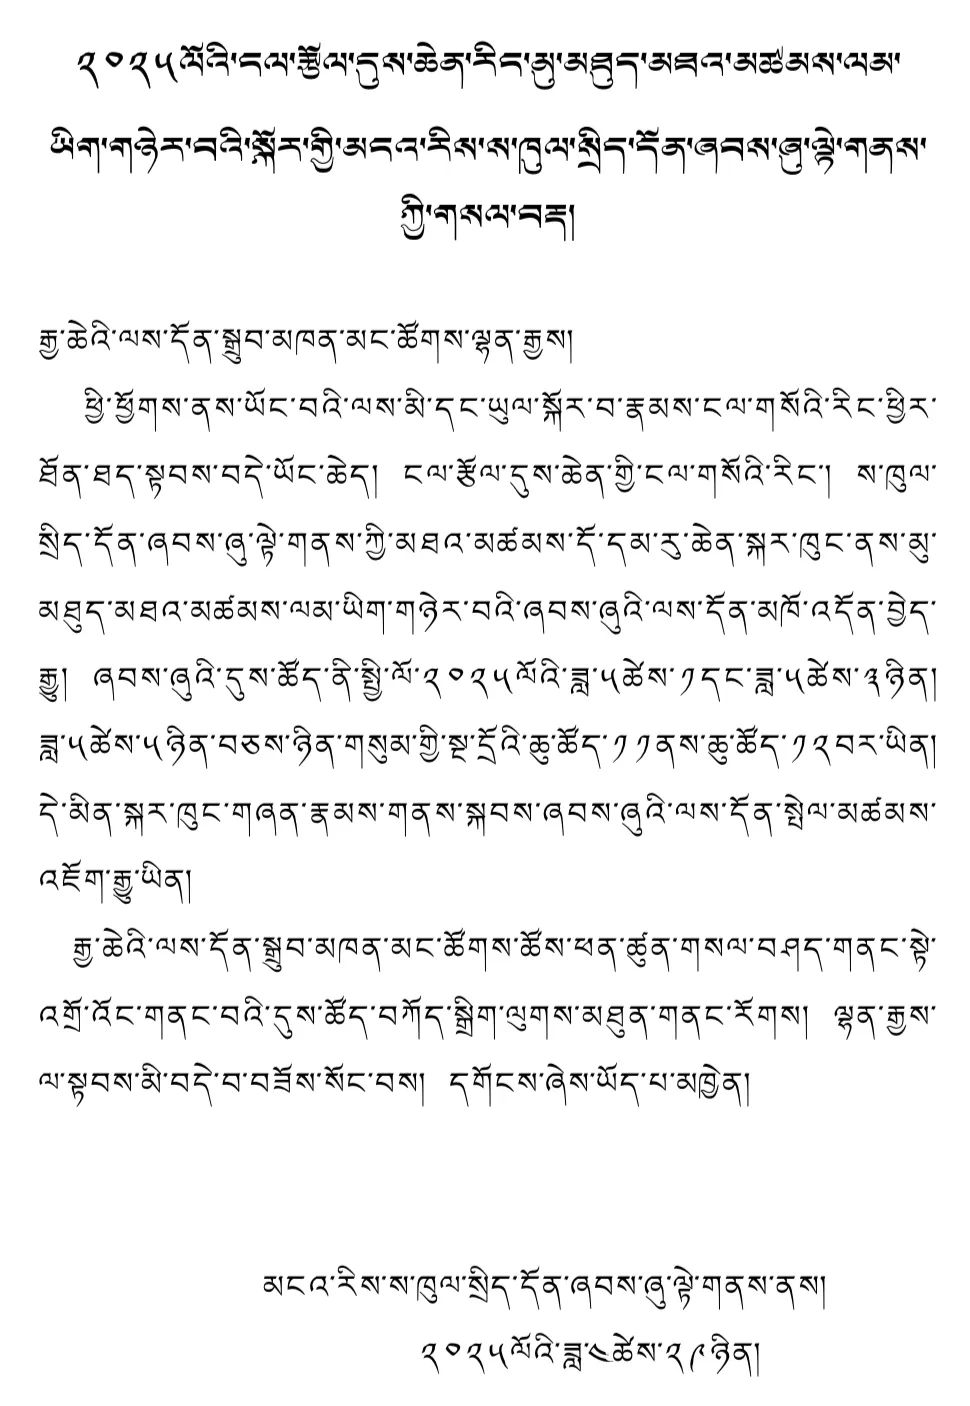 ༢༠༢༥ལོའི་ངལ་རྩོལ་དུས་ཆེན་རིང་མུ་མཐུད་མཐའ་མཚམས་ལམ་
ཡིག་གཉེར་བའི་སྐོར་གྱི་མངའ་རིས་ས་ཁུལ་སྲིད་དོན་ཞབས་ཞུ་ལྟེ་གནས་
ཀྱི་གསལ་བརྡ།
རྒྱ་ཆེའི་ལས་དོན་སྒྲུབ་མཁན་མང་ཚོགས་ལྷན་རྒྱས།
ཕྱི་ཕྱོགས་ནས་ཡོང་བའི་ལས་མི་དང་ཡུལ་སྐོར་བ་རྣམས་ངལ་གསོའི་རིང་ཕྱིར་
ཐོན་ཐད་སྟབས་བདེ་ཡོང་ཆེད། ངལ་རྩོལ་དུས་ཆེན་གྱི་ངལ་གསོའི་རིང་། ས་ཁུལ་
སྲིད་དོན་ཞབས་ཞུ་ལྟེ་གནས་ཀྱི་མཐའ་མཚམས་དོ་དམ་རུ་ཆེན་སྐར་ཁུང་ནས་མུ་
མཐུད་མཐའ་མཚམས་ལམ་ཡིག་གཉེར་བའི་ཞབས་ཞུའི་ལས་དོན་མཁོ་འདོན་བྱེད་
རྒྱུ། ཞབས་ཞུའི་དུས་ཚོད་ནི་སྤྱི་ལོ་༢༠༢༥ལོའི་ཟླ་༥ཚེས་༡དང་ཟླ་༥ཚེས་༣ཉིན།
ཟླ་༥ཚེས་༥ཉིན་བཅས་ཉིན་གསུམ་གྱི་སྔ་དྲོའི་ཆུ་ཚོད་༡༡ནས་ཆུ་ཚོད་༡༢བར་ཡིན།
དེ་མིན་སྐར་ཁུང་གཞན་རྣམས་གནས་སྐབས་ཞབས་ཞུའི་ལས་དོན་སྤེལ་མཚམས་
འཇོག་རྒྱུ་ཡིན།
རྒྱ་ཆེའི་ལས་དོན་སྒྲུབ་མཁན་མང་ཚོགས་ཚོས་ཕན་ཚུན་གསལ་བཤད་གནང་སྟེ་
འགྲོ་འོང་གནང་བའི་དུས་ཚོད་བཀོད་སྒྲིག་ལུགས་མཐུན་གནང་རོགས། ལྷན་རྒྱས་
ལ་སྟབས་མི་བདེ་བ་བཟོས་སོང་བས། དགོངས་ཞེས་ཡོད་པ་མཁྱེན།
མངའ་རིས་ས་ཁུལ་སྲིད་དོན་ཞབས་ཞུ་ལྟེ་གནས་ནས།
༢༠༢༥ལོའི་ཟླ་༤ཚེས་༢༩ཉིན།